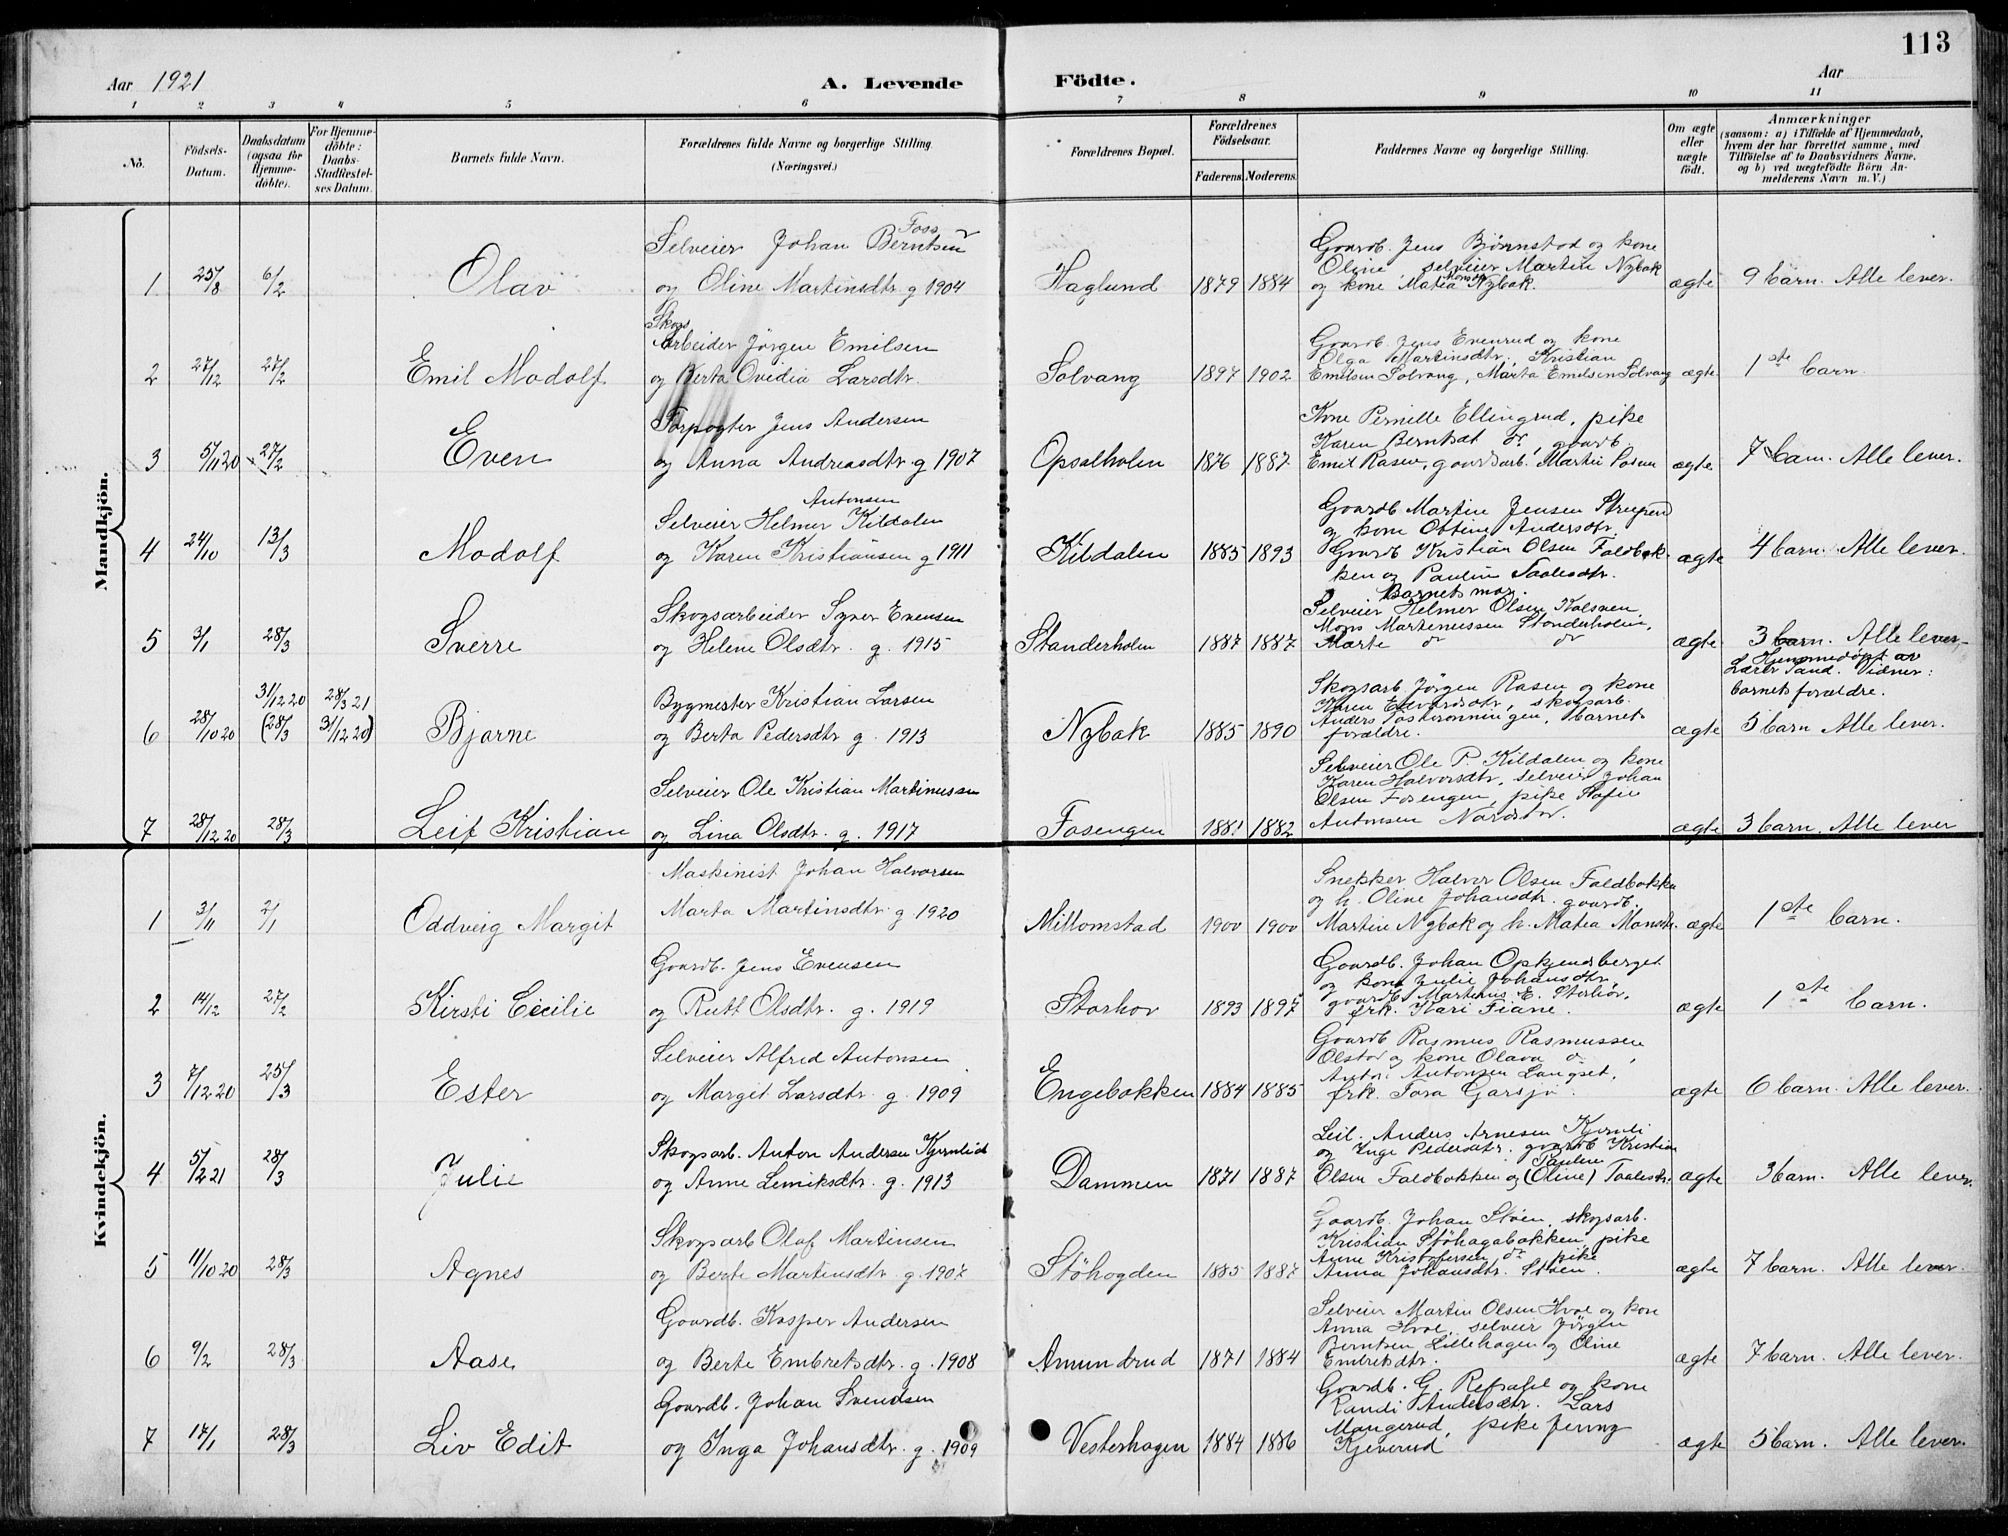 113
Aar 1921 A. Levende Födte. Aar
1 2 3 4 5 6 7 8 9 10 11
No. Födsels-Datum. Daabsdatum (ogsaa for Hjemmedöbte). For Hjemmedöbte: Daabs-Stadfestelses Datum. Barnets fulde Navn. Forældrenes fulde Navne og borgerlige Stilling (Næringsvei.) Forældrenes Bopæl. Forældrenes Födselsaar. Faderens. Moderens. Faddernes Navne og borgerlige Stilling. Om ægte eller uægte födt. Anmærkninger (saasom: a) i Tilfælde af Hjemmedaab, hvem der har forrettet samme, med Tilföielse af to Daabsvidners Navne, og b) ved uægtefödte Börn Anmelderens Navn m. V.)
Mandkjön.
Foss
Selveier Johan Berntsen Gaardb. Jens Bjørnstad og kone
Oline, selveier Martin Nybak
1 25/8 6/2 Olav og Oline Martinsdtr g 1904 Haglund 1879 1884 og kone Matea Monsdtr Nybak. ægte 9 barn. Alle lever.
Skogs
Arbeider Jörgen Emilsen Gaardb. Jens Evenrud og kone
Olga Martinsdtr., Kristian
2 27/12 27/2 Emil Modolf og Berta Ovedia Larsdtr. Solvang 1897 1902 Emilsen Solvang, Marta Emilsen Solvang ægte 1ste barn.
Forpagter Jens Andersen Kone Pernille Ellingrud, pike
Karen Berntsdt do, gaardb.
3 5/11 20 27/2 Even og Anna Andreasdtr g 1907 Opsalholen 1876 1887 Emil Rasen, gaardsarb. Martin ægte 7 barn. Alle lever.
Antonsen
Selveier Helmer Kildalen Gaardb Martin Jensen
og kone Ottine Andersdtr.
4 24/10 13/3 Modolf og Karen Kristiansen g 1911 Kildalen 1885 1893 Gaardb Kristian Olsen Faldbak- ægte 4 barn. Alle lever.
ken og Pauline Taalesdtr.
Barnets mor.
Skogsarbeider Syver Evensen Selveier Helmer Olsen Kolsveen,
Mons Martinussen Standerholen,
5 3/1 28/3 Sverre og Helene Olsdtr. g. 1915 Standerholen 1887 1887 Marte do do ægte 3 barn. Alle lever.
Hjemmedöpt av
Lærer Sand. Vidner:
barnets forældre.
31/12 20 28/3 21 Bygmester Kristian Larsen Skogsarb Jörgen Rasen og kone
Karen Edvardsdtr, skogsarb.
6 28/10 20 (28/3 31/12 20) Bjarne og Berta Pedersdtr g. 1913 Nybak 1885 1890 Anders, barnets ægte 5 barn Alle lever.
forældre.
Selveier Ole Kristian Martinussen Selveier Ole P. Kildalen og kone
Karen Halvorsdtr, selveier Johan
Olsen Fosengen, pike Sofie
7 28/12 20 28/3 Leif Kristian og Lina Olsdtr. g. 1917 Fosengen 1881 1882 Antonsen Nordstov. ægte 3 barn. Alle lever
Kvindekjön.
Maskinist Johan Halvorsen Snekker Halvor Olsen Faldbakken
og h. Oline Johansdtr, gaardb.
1 3/11 2/1 Oddveig Margit Marta Martinsdtr. g. 1920 Millomstad 1900 1900 Martin Nybak og h. Matea Monsdtr. ægte 1ste barn.
Gaardb. Jens Evensen Gaardb. Johan Opkjendsberget
og kone Julie Johansdtr,
gaardb. Martinus E. Storhov,
2 14/12 27/2 Kirsti Cecilie og Rutt Olsdtr. g. 1919 Storhov 1893 1897 frk. Kari Fiane. ægte 1ste barn.
Selveier Alfred Antonsen Gaardb Rasmus Rasmussen
Olstad og kone Olava do,
Anton Antonsen Langset,
3 7/12 20 25/3 Ester og Margit Larsdtr. g. 1909 Engebakken 1884 1885 frk. Tora Garsjö. ægte 6 barn. Alle lever.
Skogsarb. Anton Andersen Kjernlid Leil. Anders Arnesen Kjernli
og Inge Pedersdtr. gaardb Kristian
Pauline
4 5/2 21 28/3 Julie og Anne Lemiksdtr. g. 1913 Dammen 1871 1887 Olsen Faldbakken og (Oline) Taalesdtr. ægte 3 barn. Alle lever.
Skogsarb Olaf Martinsen Gaardb. Johan Støen, skogsarb.
Kristian Støhagabakken, pike
Anne Kristofersen do, pike
5 11/10 20 28/3 Agnes og Berte Martensdtr. g. 1907 Stöhogden 1885 1887 Anna Johansdtr. Støen. ægte 7 barn. Alle lever.
Gaardb. Kasper Andersen Selveier Martin Olsen Hvol og kone
Anna Hvol, selveier Jörgen
Berntsen Lillehagen og Oline
6 9/2 28/3 Aase og Berte Embretsdtr. g. 1908 Amundrud 1871 1884 Embretsdtr. ægte 7 barn. Alle lever.
Gaardb. Johan Svendsen Gaardb. G. Refsahl og kone
Randi Andersdtr. Lars
Mangerud, pike Jenny
7 17/1 28/3 Liv Edit og Inga Johansdtr. g. 1909 Vesterhagen 1884 1886 Kjeverud ægte 5 barn. Alle lever.